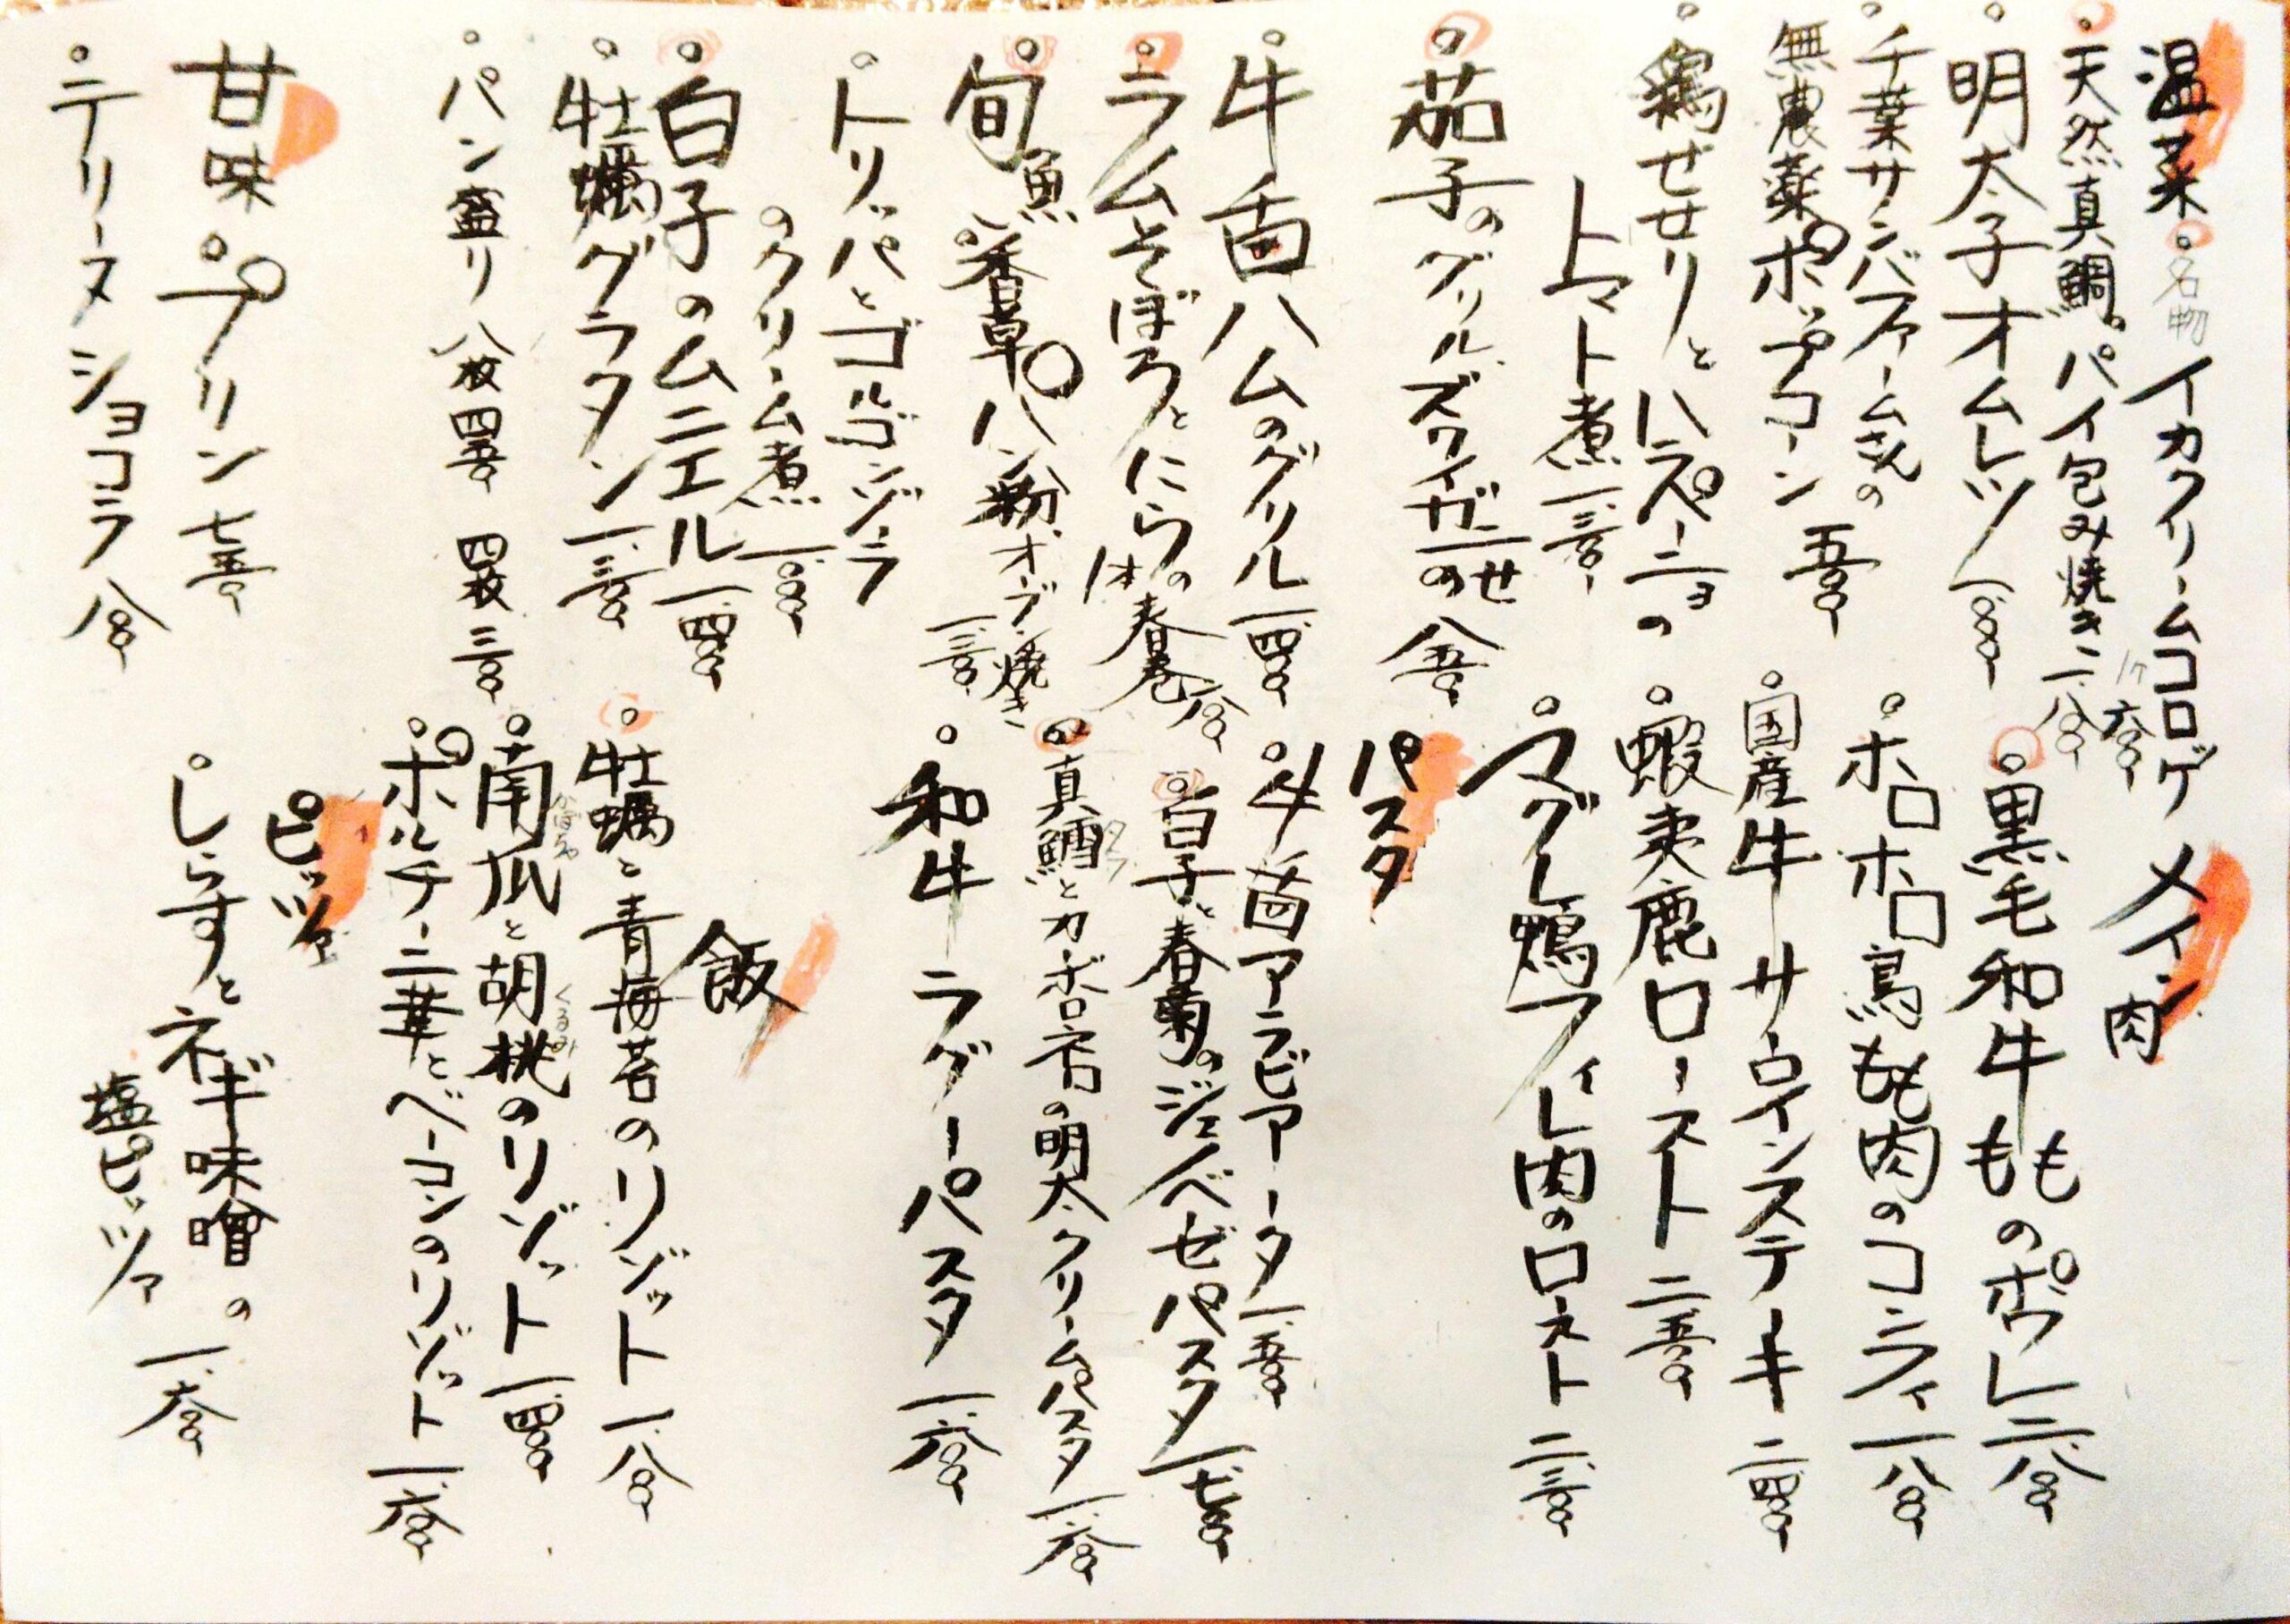 温菜
名物 イカクリームコロッケ 1ケ 六〇〇
天然真鯛パイ包み焼き 二、八〇〇
明太子オムレツ 一、〇〇〇
千葉サンバファームさんの
無農薬ポップコーン 五〇〇
鶏せせりとハラペーニョの
トマト煮 一、三〇〇
茄子のグリル ズワイガニのせ 八五〇
牛舌ハムのグリル 一、四〇〇
ラムそぼろとにらの春巻 1本 六〇〇
旬魚 香草パン粉オーブン焼き 一、三〇〇
トリッパとゴルゴンゾーラ
のクリーム煮 一、〇〇〇
白子のムニエル 一、四〇〇
牡蠣グラタン 一、三〇〇
パン盛り 八枚 四五〇 四枚 三〇〇
甘味
プリン 七五〇
テリーヌショコラ 八〇〇
メイン 肉
黒毛和牛もものポワレ 二、八〇〇
ホロホロ鳥もも肉のコンフィ 一、八〇〇
国産牛サーロインステーキ 二、四〇〇
蝦夷鹿ロースト 二、五〇〇
マグレ鴨フィレ肉のロースト 二、三〇〇
パスタ
牛舌アラビアータ 一、五〇〇
白子と春菊のジェノベーゼパスタ 一、七〇〇
真鱈とカーボロネロの明太クリームパスタ 一、六〇〇
タラ
和牛ラグーパスタ 一、六〇〇
飯
牡蠣と青海苔のリゾット 一、八〇〇
南瓜と胡桃のリゾット 一、四〇〇
かぼちゃ くるみ
ポルチーニ茸とベーコンのリゾット 一、六〇〇
ピッツァ
しらすとネギ味噌の
塩ピッツァ 一、六〇〇